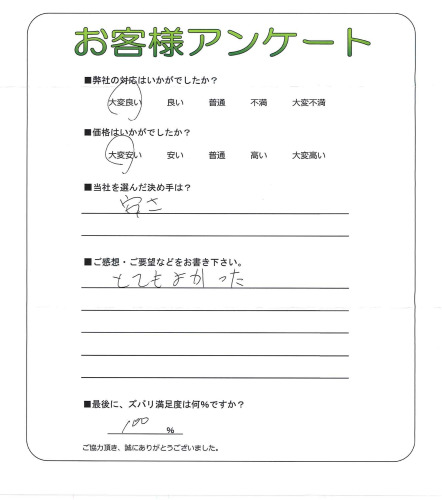 お客様アンケート
■弊社の対応はいかがでしたか？
大変良い 良い 普通 不満 大変不満
■価格はいかがでしたか？
大変安い 安い 普通 高い 大変高い
■当社を選んだ決め手は？
安さ
■ご感想・ご要望などをお書き下さい。
とてもよかった
■最後に、ズバリ満足度は何％ですか？
100 %
ご協力頂き、誠にありがとうございました。